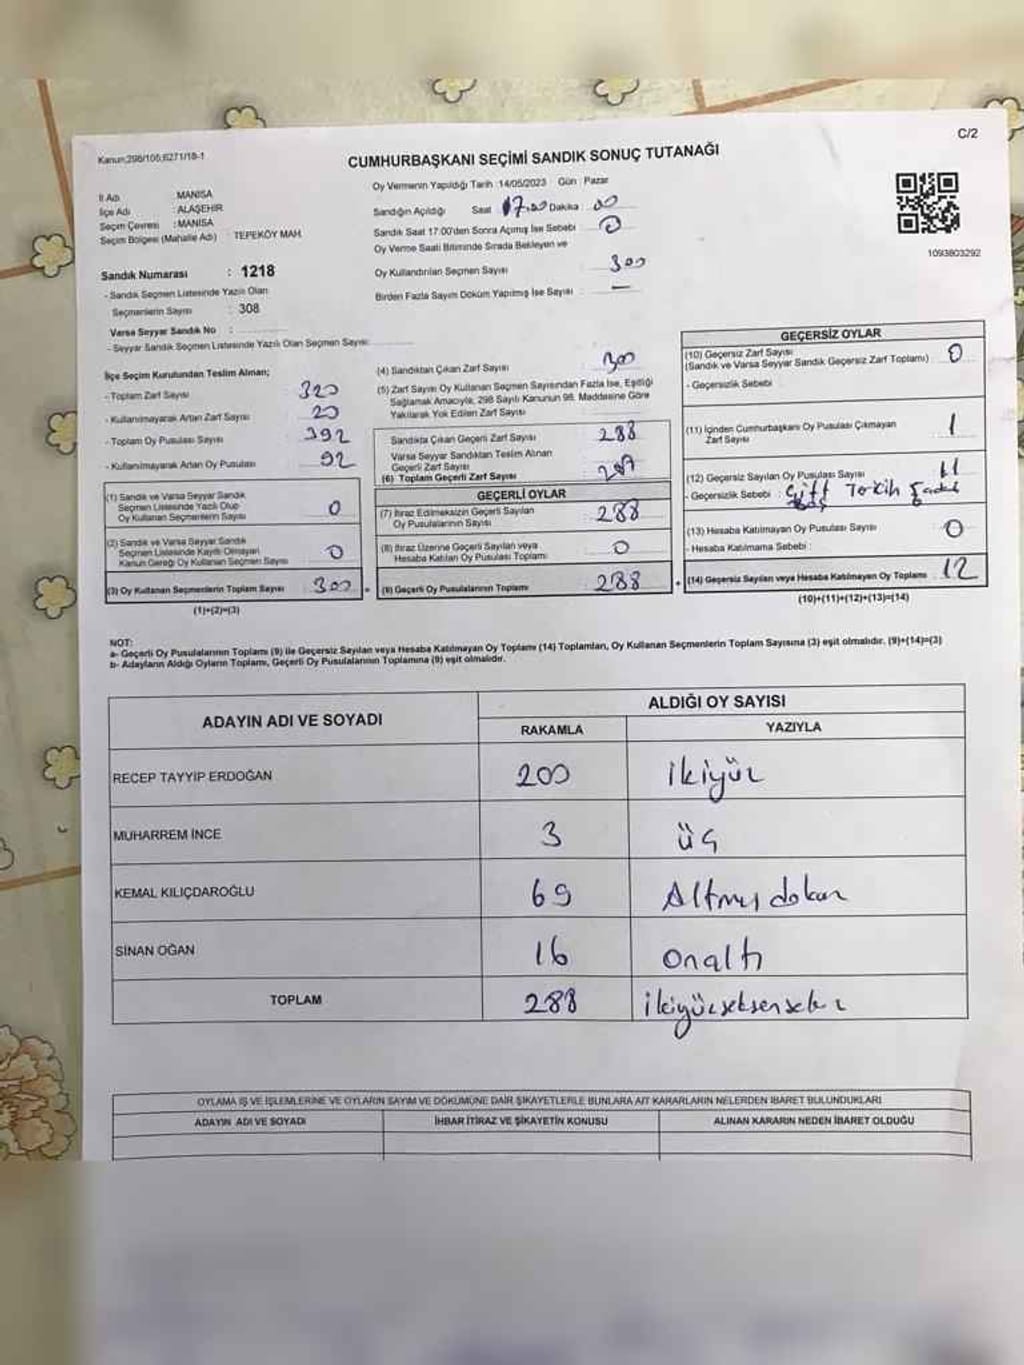 C/2
Kanun;298/105;6271/18-1
CUMHURBAŞKANI SEÇİMİ SANDIK SONUÇ TUTANAĞI
İl Adı : MANİSA
İlçe Adı : ALAŞEHİR
Seçim Çevresi : MANİSA
Seçim Bölgesi (Mahalle Adı) : TEPEKÖY MAH.
Oy Vermenin Yapıldığı Tarih :14/05/2023 Gün : Pazar
Sandığın Açıldığı Saat 17.00 Dakika : 00
Sandık Saat 17:00'den Sonra Açımış İse Sebebi : 0
Oy Verme Saati Bitiminde Sırada Bekleyen ve
Oy Kullandırılan Seçmen Sayısı 300
Birden Fazla Sayım Döküm Yapılmış İse Sayısı : —
1093803292
Sandık Numarası : 1218
- Sandık Seçmen Listesinde Yazılı Olan
Seçmenlerin Sayısı : 308
Varsa Seyyar Sandık No :
- Seyyar Sandık Seçmen Listesinde Yazılı Olan Seçmen Sayısı:
İlçe Seçim Kurulundan Teslim Alınan;
- Toplam Zarf Sayısı 320
- Kullanılmayarak Artan Zarf Sayısı 20
- Toplam Oy Pusulası Sayısı 392
- Kullanılmayarak Artan Oy Pusulası 92
(1) Sandık ve Varsa Seyyar Sandık
Seçmen Listesinde Yazılı Olup
Oy Kullanan Seçmenlerin Sayısı 0
(2) Sandık ve Varsa Seyyar Sandık
Seçmen Listesinde Kayıtlı Olmayan
Kanun Gereği Oy Kullanan Seçmen Sayısı 0
(3) Oy Kullanan Seçmenlerin Toplam Sayısı 300
(1)+(2)=(3)
(4) Sandıktan Çıkan Zarf Sayısı 300
(5) Zarf Sayısı Oy Kullanan Seçmen Sayısından Fazla İse, Eşitliği
Sağlamak Amacıyla, 298 Sayılı Kanunun 98. Maddesine Göre
Yakılarak Yok Edilen Zarf Sayısı
Sandıkta Çıkan Geçerli Zarf Sayısı 288
Varsa Seyyar Sandıktan Teslim Alınan
Geçerli Zarf Sayısı
(6) Toplam Geçerli Zarf Sayısı
GEÇERLİ OYLAR
(7) İtiraz Edilmeksizin Geçerli Sayılan
Oy Pusulalarının Sayısı 288
(8) İtiraz Üzerine Geçerli Sayılan veya
Hesaba Katılan Oy Pusulası Toplamı 0
(9) Geçerli Oy Pusulalarının Toplamı 288
+
GEÇERSİZ OYLAR
(10) Geçersiz Zarf Sayısı
(Sandık ve Varsa Seyyar Sandık Geçersiz Zarf Toplamı) 0
- Geçersizlik Sebebi
(11) İçinden Cumhurbaşkanı Oy Pusulası Çıkmayan
Zarf Sayısı 1
(12) Geçersiz Sayılan Oy Pusulası Sayısı 11
- Geçersizlik Sebebi : Çift Tercih
(13) Hesaba Katılmayan Oy Pusulası Sayısı 0
- Hesaba Katılmama Sebebi :
(14) Geçersiz Sayılan veya Hesaba Katılmayan Oy Toplamı 12
(10)+(11)+(12)+(13)=(14)
NOT:
a- Geçerli Oy Pusulalarının Toplamı (9) ile Geçersiz Sayılan veya Hesaba Katılmayan Oy Toplamı (14) Toplamları, Oy Kullanan Seçmenlerin Toplam Sayısına (3) eşit olmalıdır. (9)+(14)=(3)
b- Adayların Aldığı Oyların Toplamı, Geçerli Oy Pusulalarının Toplamına (9) eşit olmalıdır.
ADAYIN ADI VE SOYADI
ALDIĞI OY SAYISI
RAKAMLA YAZIYLA
RECEP TAYYİP ERDOĞAN 200 ikiyüz
MUHARREM İNCE 3 üç
KEMAL KILIÇDAROĞLU 69 Altmış dokuz
SİNAN OĞAN 16 onaltı
TOPLAM 288 ikiyüzseksensekiz
OYLAMA İŞ VE İŞLEMLERİNE VE OYLARIN SAYIM VE DÖKÜMÜNE DAİR ŞİKAYETLERLE BUNLARA AİT KARARLARIN NELERDEN İBARET BULUNDUKLARI
ADAYIN ADI VE SOYADI İHBAR İTİRAZ VE ŞİKAYETİN KONUSU ALINAN KARARIN NEDEN İBARET OLDUĞU